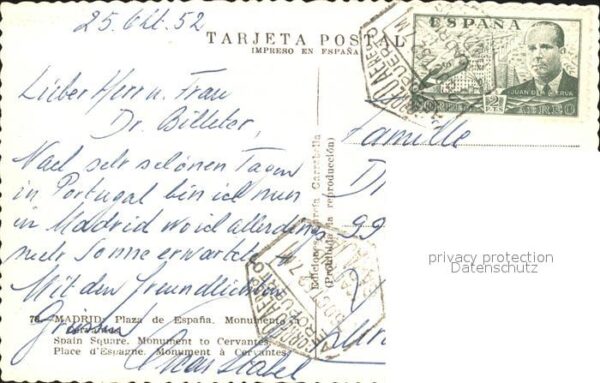 25. Okt. 52
TARJETA POSTAL
IMPRESO EN ESPAÑA
ESPAÑA
JUAN DE LA CIERVA
CORREO 2 PTS AEREO
Lieber Herr u. Frau
Dr. Billeter,
Nach sehr schönen Tagen
in Portugal bin ich nun
in Madrid wo ich allerdings
mehr Sonne erwartete.
Mit den freundlichsten
Grüssen
78. MADRID. Plaza de España. Monumento a
Cervantes
Spain Square. Monument to Cervantes
Place d'Espagne. Monument à Cervantes
Ediciones García Garrabella
(Prohibida la reproducción)
Familie
privacy protection
Datenschutz